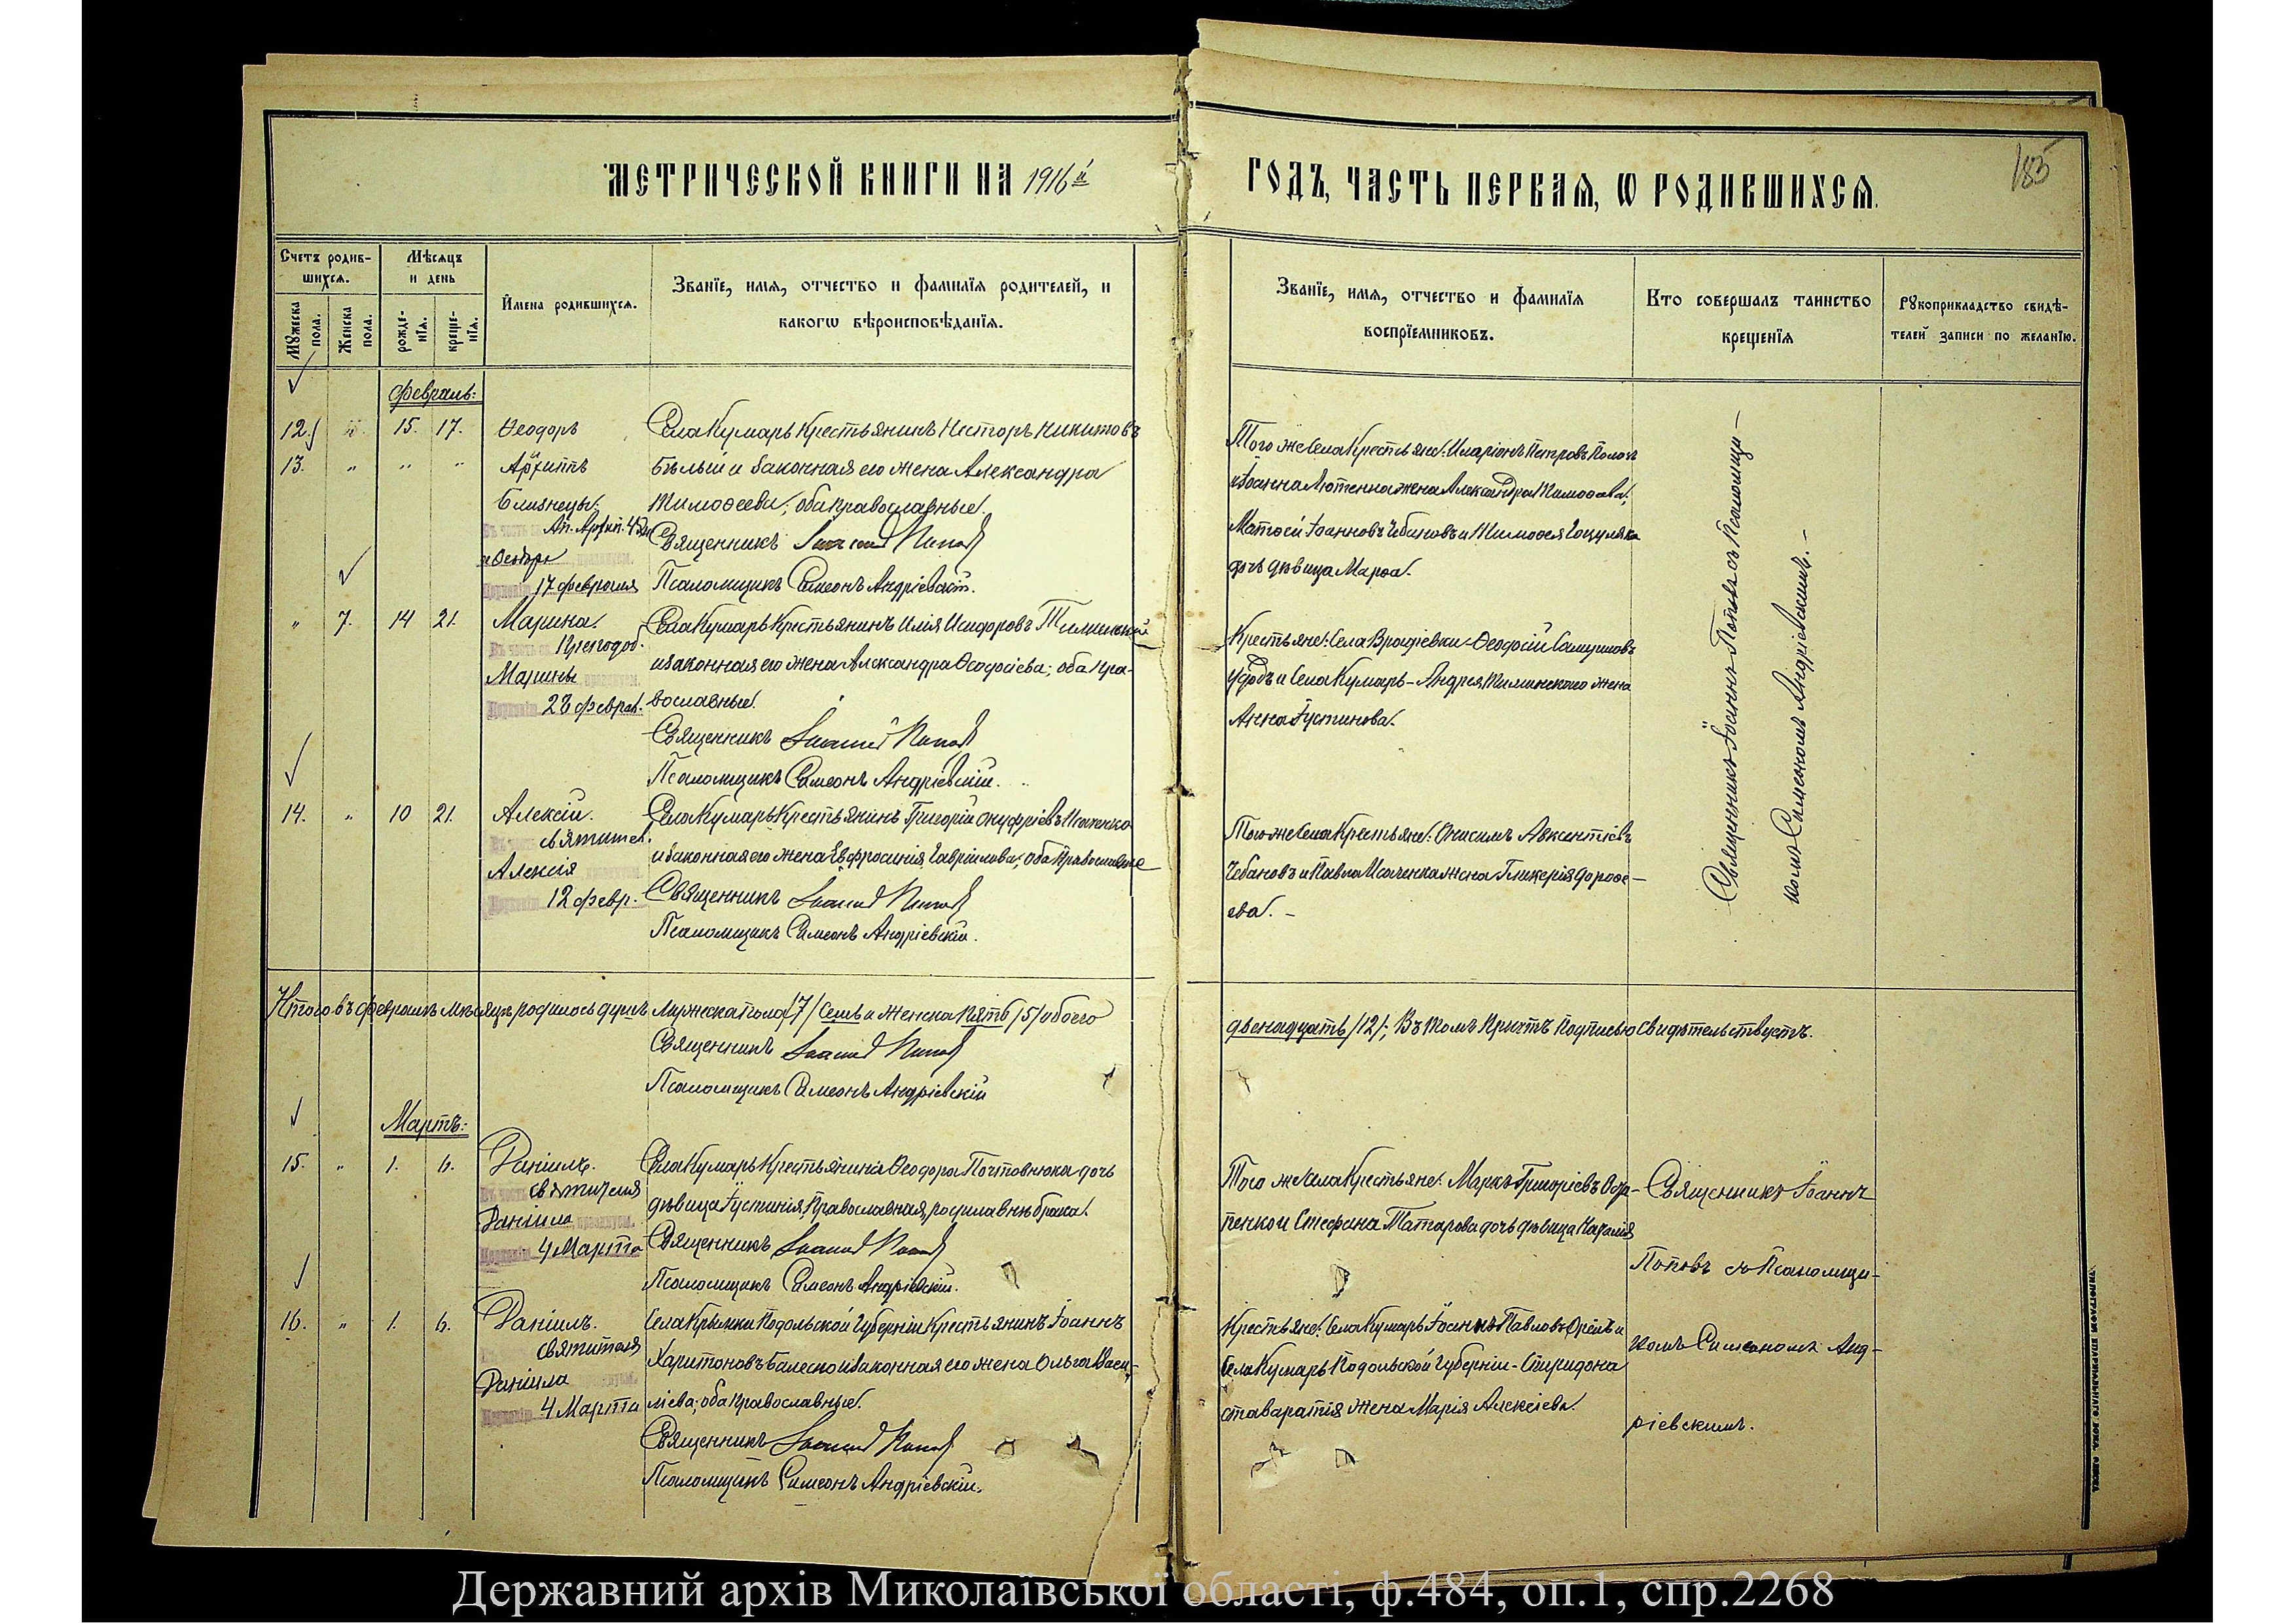 МЕТРИЧЕСКОЙ КНИГИ НА 1916й
ГОДЪ, ЧАСТЬ ПЕРВАЯ, Ѡ РОДИВШИХСЯ.
185
Счетъ родив-
шихся.
Мѣсяцъ
и день
Мꙋжеска
пола.
Женска
пола.
рожде-
нїя.
креще-
нїя.
Имена родившихся.
Званїе, имя, отчество и фамилїя родителей, и
какогѡ вѣроисповѣданїя.
Званїе, имя, отчество и фамилїя
воспрїемниковъ.
Кто совершалъ таинство
крещенїя
Рꙋкоприкладство свидѣ-
телей записи по желанїю.
Февраль:
12. " 15. 17. Ѳеодоръ Села Кумарь Крестьянинъ Несторъ Никитовъ
13. " " " Архиппъ Бѣлый и законная его жена Александра
Близнецы. Тимоѳеева; оба православные.
Ап. Архип.
Священникъ Іоаннъ Поповъ
и Ѳеодора
17 февраля Псаломщикъ Симеонъ Андріевскій.
Того же села Крестьяне: Иларіонъ Петровъ
жена Александра
Матѳей Іоанновъ Чебановъ и Тимоѳея
дочь дѣвица Марѳа.
" 7. 14 21. Марина. Села Кумарь Крестьянинъ Илія Исидоровъ Тилинскій
Въ честь Преподоб.
Марины и законная его жена Александра Ѳеодосіева; оба пра-
28 феврал. вославные.
Священникъ Іоаннъ Поповъ
Псаломщикъ Симеонъ Андріевскій.
Крестьяне: Села Врадіевки - Ѳеодосій
и Села Кумарь - Андрея Тилинскаго жена
Анна Іустинова.
14. " 10 21. Алексій. Села Кумарь Крестьянинъ Григорій Онуфріевъ Исаченко
Въ честь святител.
Алексія и законная его жена Евфросинія Гавріилова; оба православные
12 февр. Священникъ Іоаннъ Поповъ
Псаломщикъ Симеонъ Андріевскій.
Того же села Крестьяне: Онисимъ Авксентіевъ
Чебановъ и Павла Исаченка жена Гликерія Дороѳе-
ева. -
Священникъ Іоаннъ Поповъ съ Псаломщи-
комъ Симеономъ Андріевскимъ. -
Итого въ февралѣ мѣсяцѣ родилось душъ Мужеска пола /7/ Семь и Женска Пять /5/ обоего
двенадцать /12/; В томъ Причтъ подписью свидѣтельствуетъ.
Священникъ Іоаннъ Поповъ
Псаломщикъ Симеонъ Андріевскій
Мартъ:
15. " 1. 6. Даніилъ. Села Кумарь Крестьянина Ѳеодора Почтовнюка дочь
Въ честь святителя
Даніила дѣвица Іустинія, Православная, родила внѣ брака.
4 Марта Священникъ Іоаннъ Поповъ
Псаломщикъ Симеонъ Андріевскій.
Того же села Крестьяне: Маркъ Григоріевъ
и Стефана Татарова дочь дѣвица Наталія
Священникъ Іоаннъ
Поповъ съ Псаломщи-
комъ Симеономъ Анд-
ріевскимъ.
16. " 1. 6. Даніилъ. Села Крымки Подольской Губерніи Крестьянинъ Іоаннъ
святителя
Харитоновъ и законная его жена Ольга Васи-
Даніила
4 Марта ліева; оба православные.
Священникъ Іоаннъ Поповъ
Псаломщикъ Симеонъ Андріевскій.
Крестьяне: Села Кумарь Іоаннъ Павловъ Орелъ и
Села Кумарь Подольской Губерніи - Спиридона
жена Марія Алексіева.
Державний архів Миколаївської області, ф.484, оп.1, спр.2268